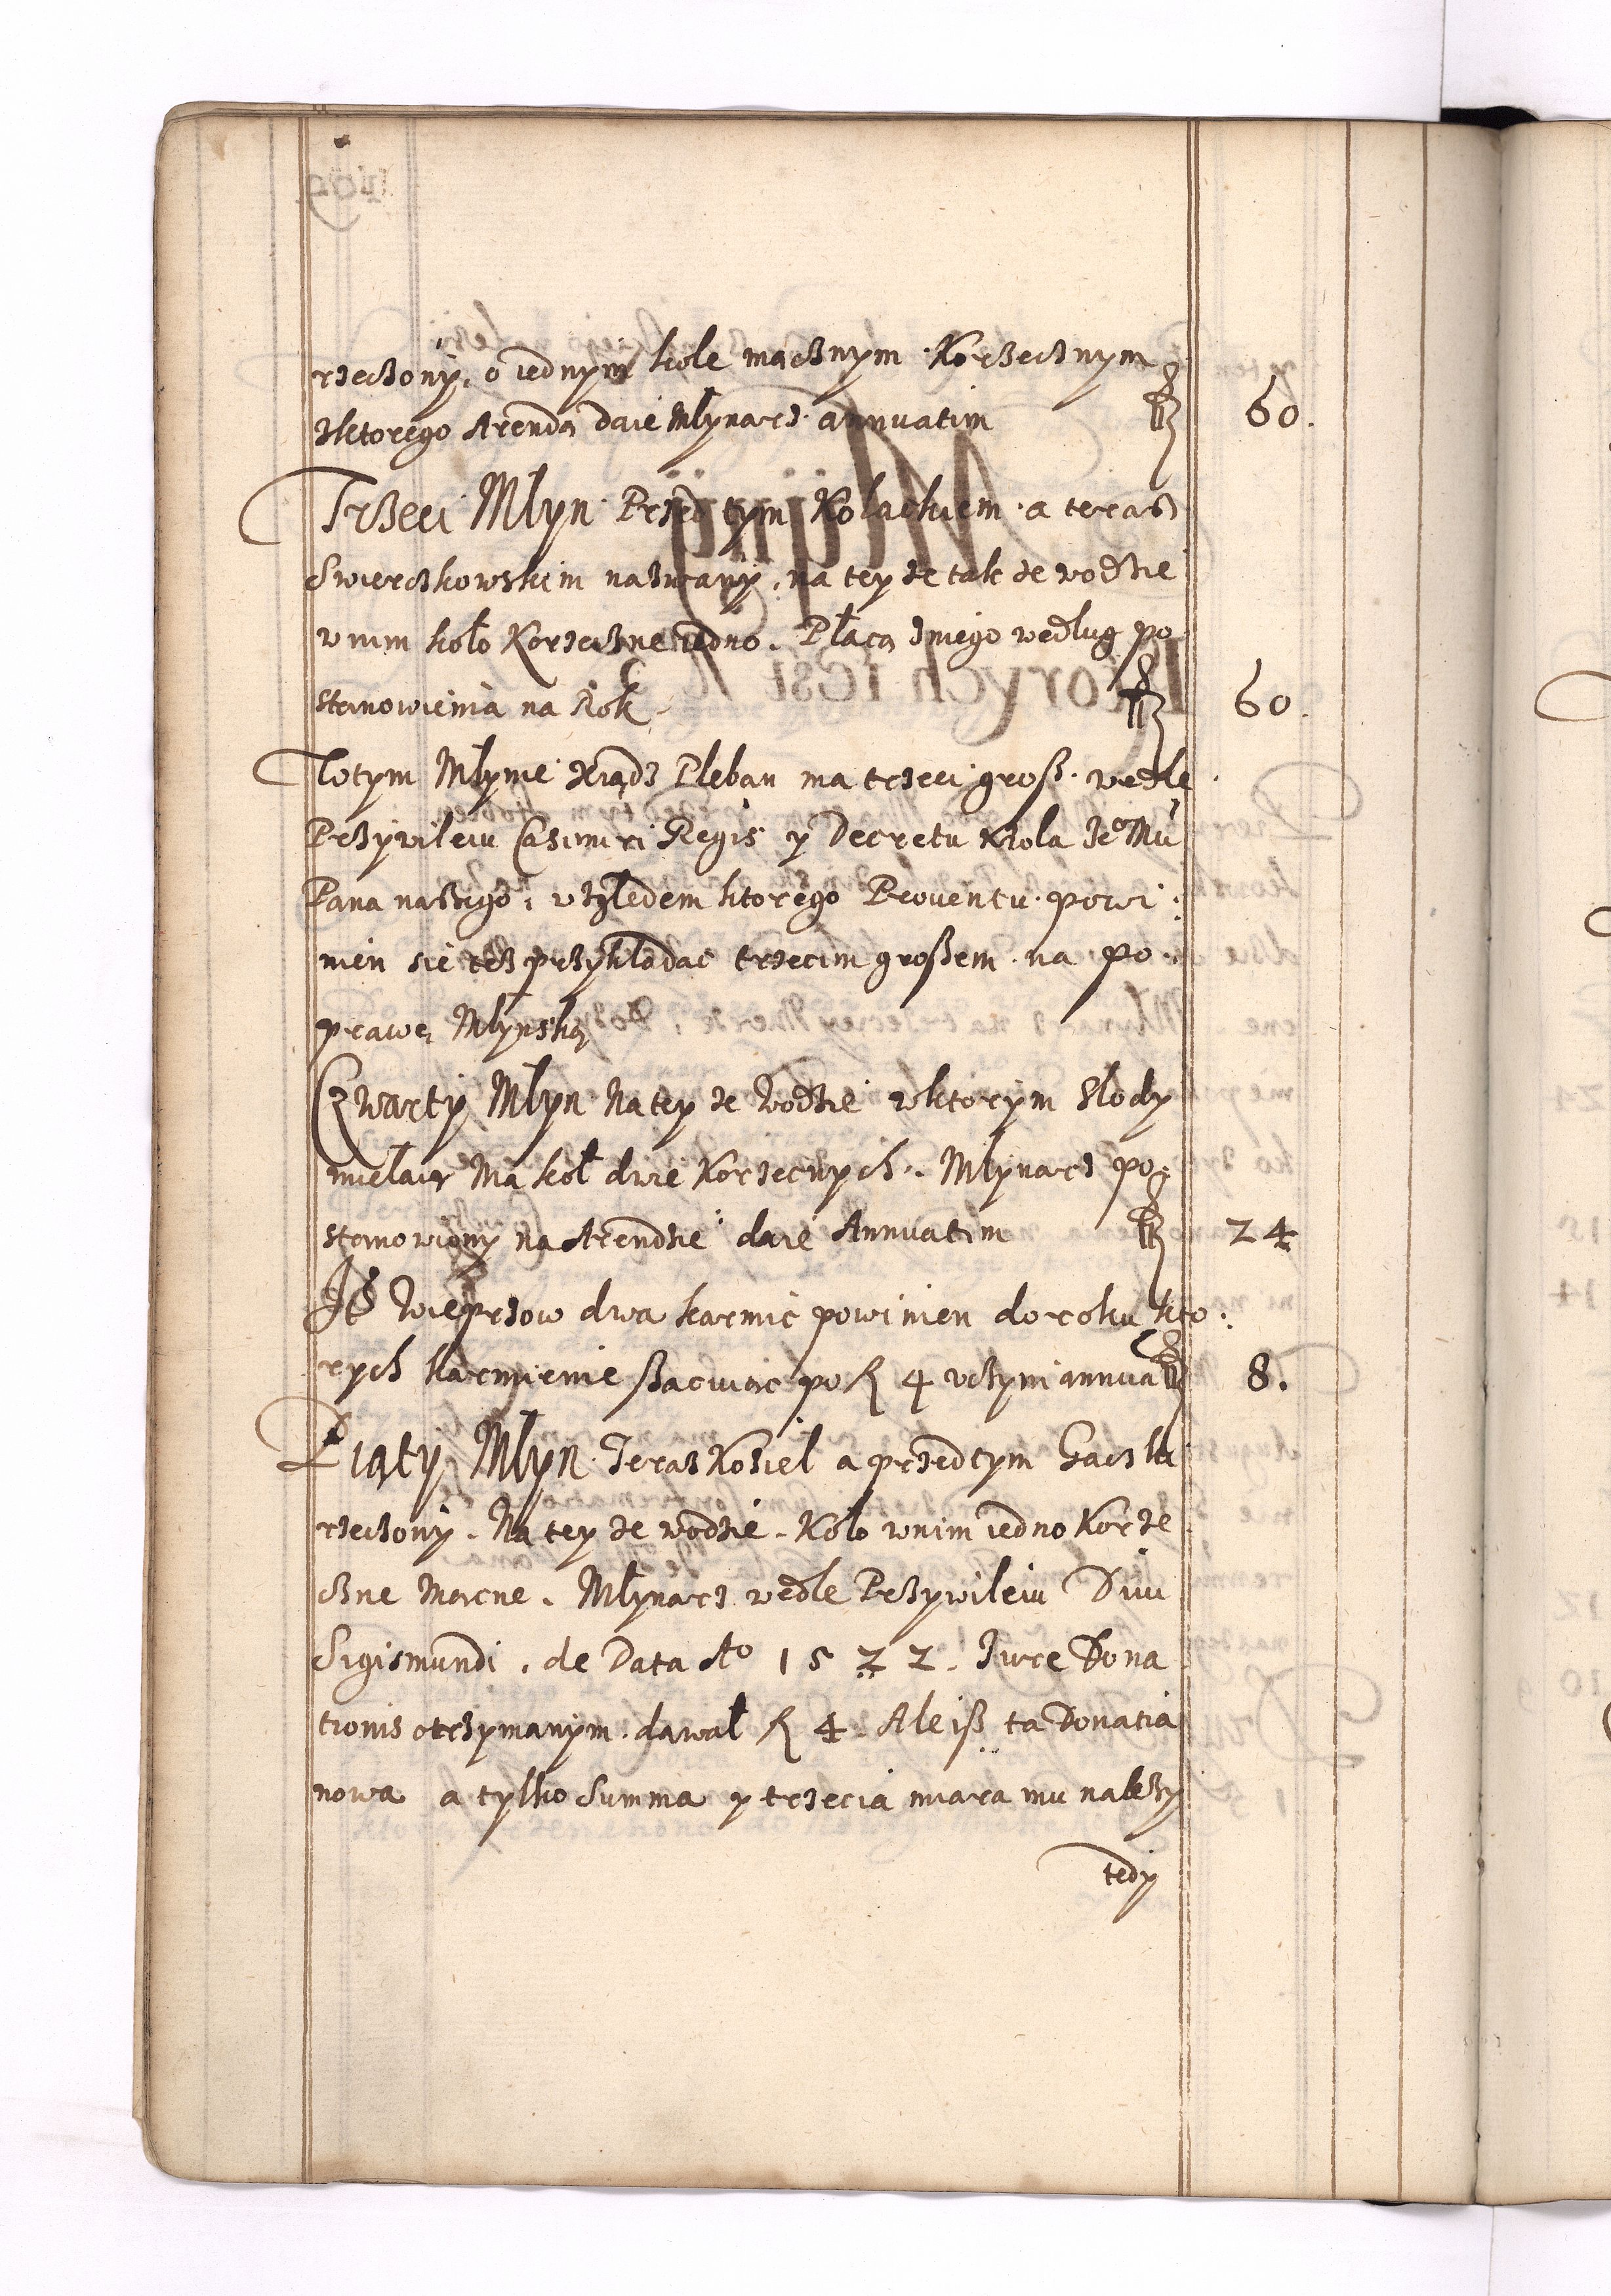 rzeczony, o iednym kole macznym Korzecznym
zktorego Arendą daie Mlynarz annuatim 60.
Trzeci Mlyn Przed tym Kolackiem a teraz
Swierczkowskim nazwany, na tey ze tak ze wodzie
w nim koło Korzeczne iedno. Płacą zniego według po
stanowienia na Rok 60.
Wtotym Mlynie Xiądz Pleban ma trzeci grosz wedle
Przywileiu Casimiri Regis y Decretu Krola Je° Mći
Pana naszego, względem ktorego Proventu powi:
nien sie tez przykładac trzecim groszem na po:
prawę Młynską
Czwarty Mlyn Na tey ze wodzie wktorym Slody
mielaią Ma koł dwie Korzecnych. Młynarz po:
stanowiony na Arendzie daie Annuatim 24
It Wieprzow dwa karmic powinien do roku kto:
rych karmienie szacuiąc po R 4 vczyni annua 8.
Piąty Mlyn Teraz Koziel a przedtym Gaczka
rzeczony. Na tey ze wodzie. Koło wnim iedno Korze
czne Mącne. Młynarz wedle Przywileiu Divi
Sigismundi, de Data A° 1522. Jure Dona
tionis otrzymanym dawał R 4. Ale isz ta Donatia
nowa a tylko Summa y trzecia miara mu należy
tedy